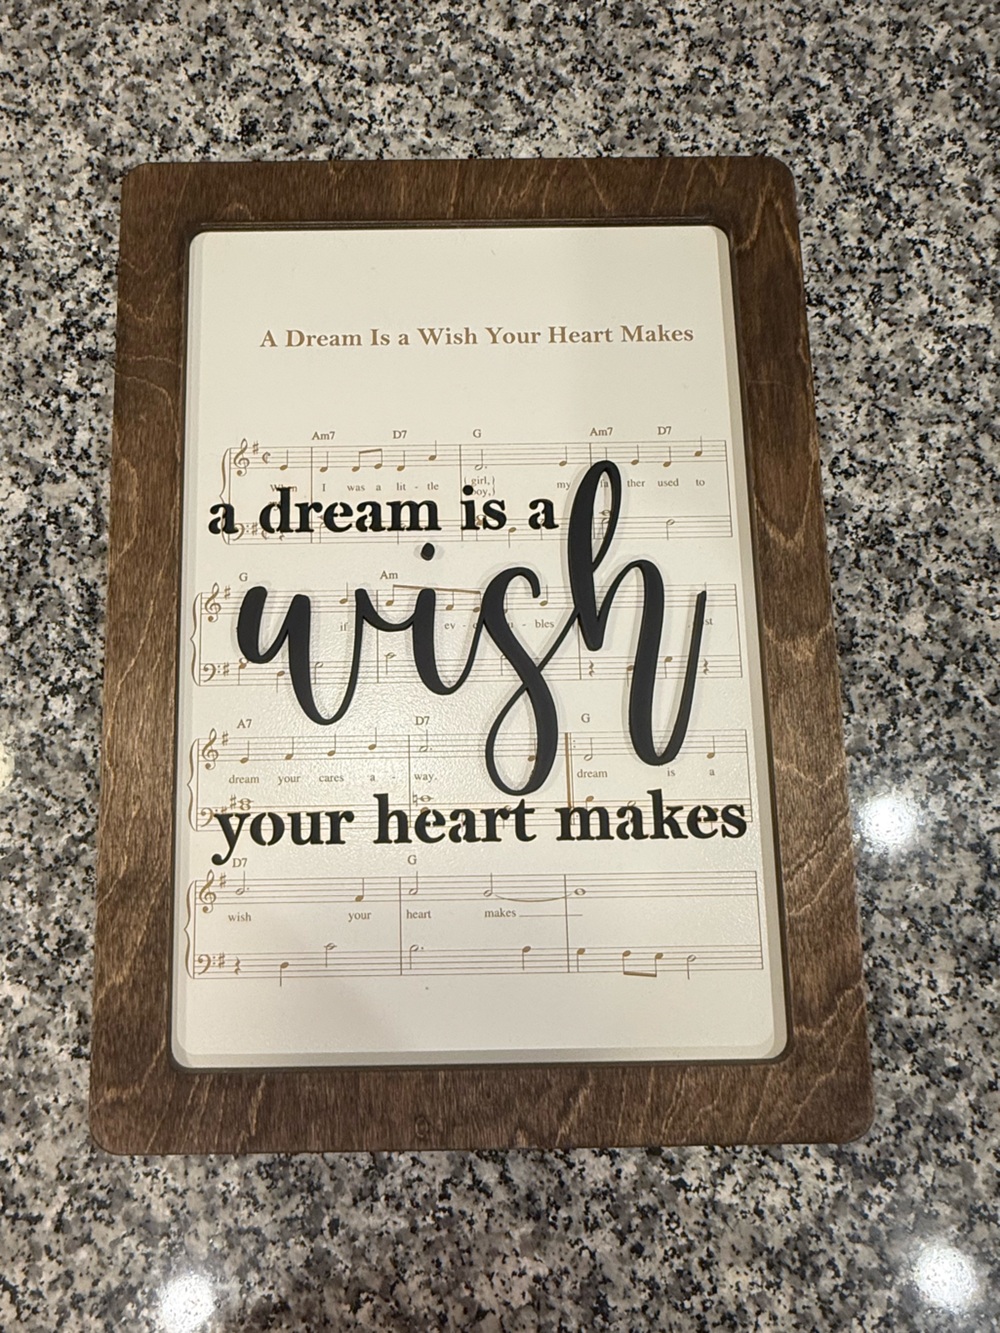 A Dream Is a Wish Your Heart Makes
Am7 D7 G Am7 D7
I was a lit - tle girl, my ther used to
a dream is a
wish
G Am
if ev - bles
A7 D7 G
dream your cares a - way. dream is a
your heart makes
D7 G
wish your heart makes